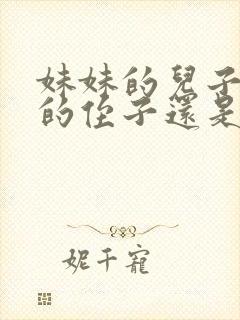 妹妹的兒子
的侄子還是
妮千寵